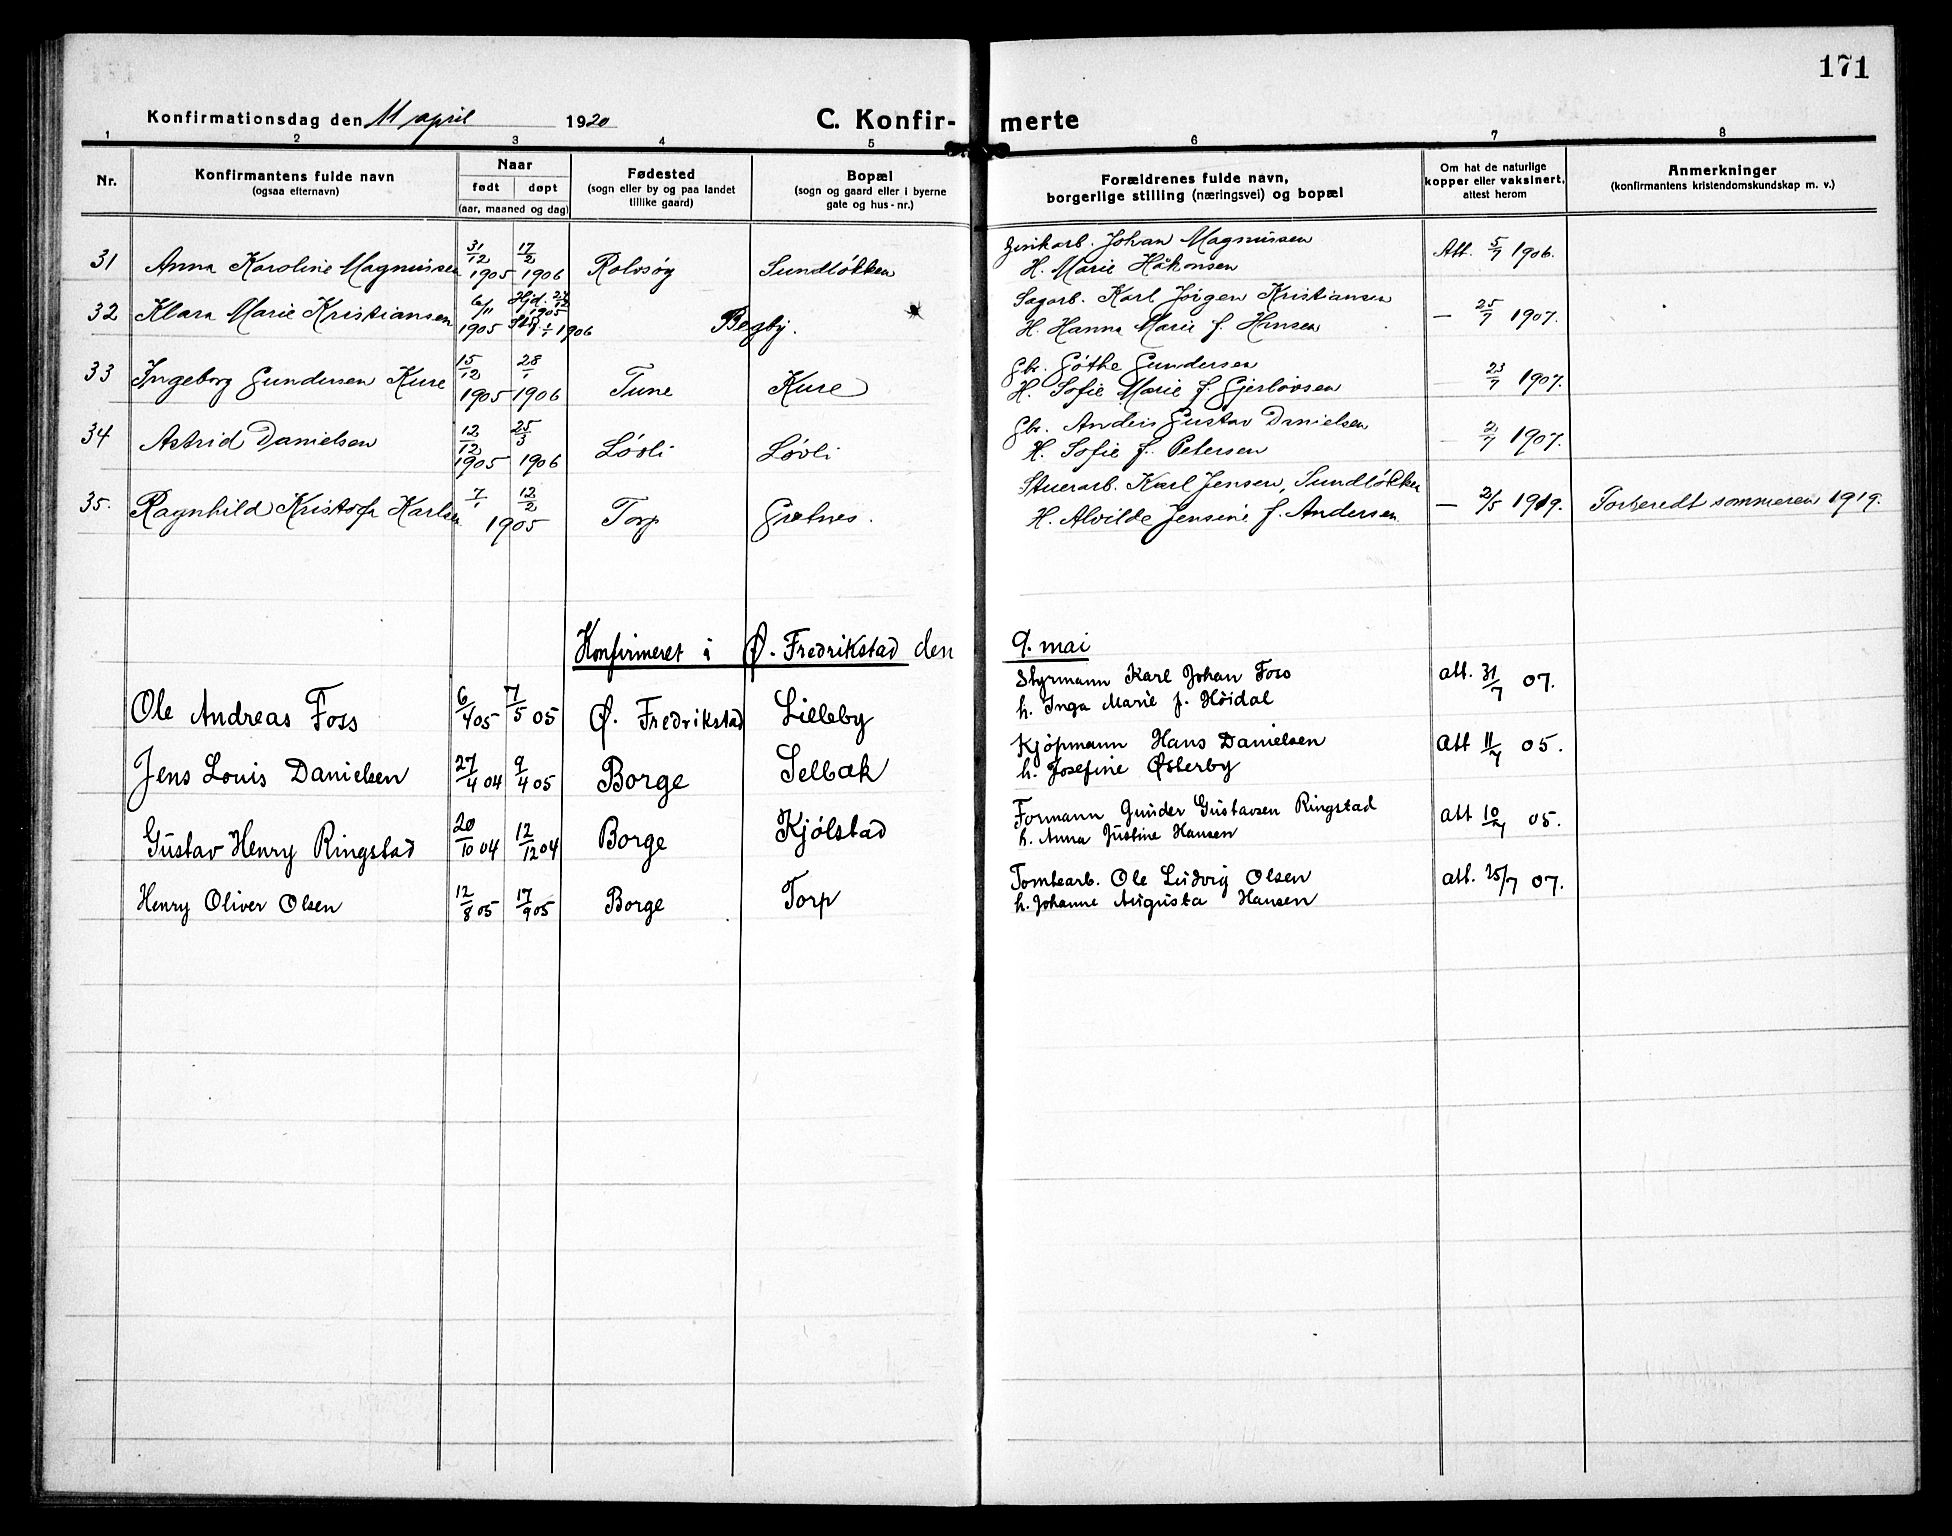 171
Konfirmationsdag den 11 april 1920
C. Konfir- merte
1 2 3 4 5 6 7 8
Nr.
Konfirmantens fulde navn
(ogsaa efternavn)
Naar
født døpt
(aar, maaned og dag)
Fødested
(sogn eller by og paa landet
tillike gaard)
Bopæl
(sogn og gaard eller i byerne
gate og hus-nr.)
Forældrenes fulde navn,
borgerlige stilling (næringsvei) og bopæl
Om hat de naturlige
kopper eller vaksinert,
attest herom
Anmerkninger
(konfirmantens kristendomskundskap m. v.)
31 Anna Karoline Magnussen 31/12 1905 17/2 1906 Rolvsøy Sundløkken Johan Magnussen Att. 5/7 1906.
H. Marie Håkonsen
32 Klara Marie Kristiansen 6/11 1905 Hjd. 24/12 1905 1/1 1906 Begby. Sagarb. Karl Jørgen Kristiansen — 25/7 1907.
H. Hanna Marie f. Hansen
33 Ingeborg Gundersen Kure 15/12 1905 28/1 1906 Tune Kure Gbr. Gøthe Gundersen — 23/7 1907.
H. Sofie Marie f. Gjerløvsen
34 Astrid Danielsen 12/12 1905 25/3 1906 Løvli Løvli Gbr. Anders Gustav Danielsen — 2/7 1907.
H. Sofie f. Petersen
35. Ragnhild Kristofa Karlsen 7/1 12/2 1905 Torp Gretnes. Stuerarb. Karl Jensen, Sundløkken — 2/5 1919. Forberedt sommeren 1919.
H. Alvilde Jensine f. Andersen
Konfirmeret i Ø. Fredrikstad den 9. mai
Ole Andreas Foss 6/4 05 7/5 05 Ø. Fredrikstad Lilleby Styrmann Karl Johan Foss att. 31/7 07.
h. Inga Marie f. Höidal
Jens Louis Danielsen 27/4 04 9/4 05 Borge Selbæk Kjøpmann Hans Danielsen att 11/7 05.
h. Josefine Østerby
Gustav Henry Ringstad 20/10 04 12/12 04 Borge Kjølstad Formann Gunder Gustavsen Ringstad att 10/7 05.
h. Anna Justine Hansen
Henry Oliver Olsen 12/8 05 17/9 05 Borge Torp Tomtearb. Ole Ludvig Olsen att. 25/7 07.
h. Johanne Augusta Hansen